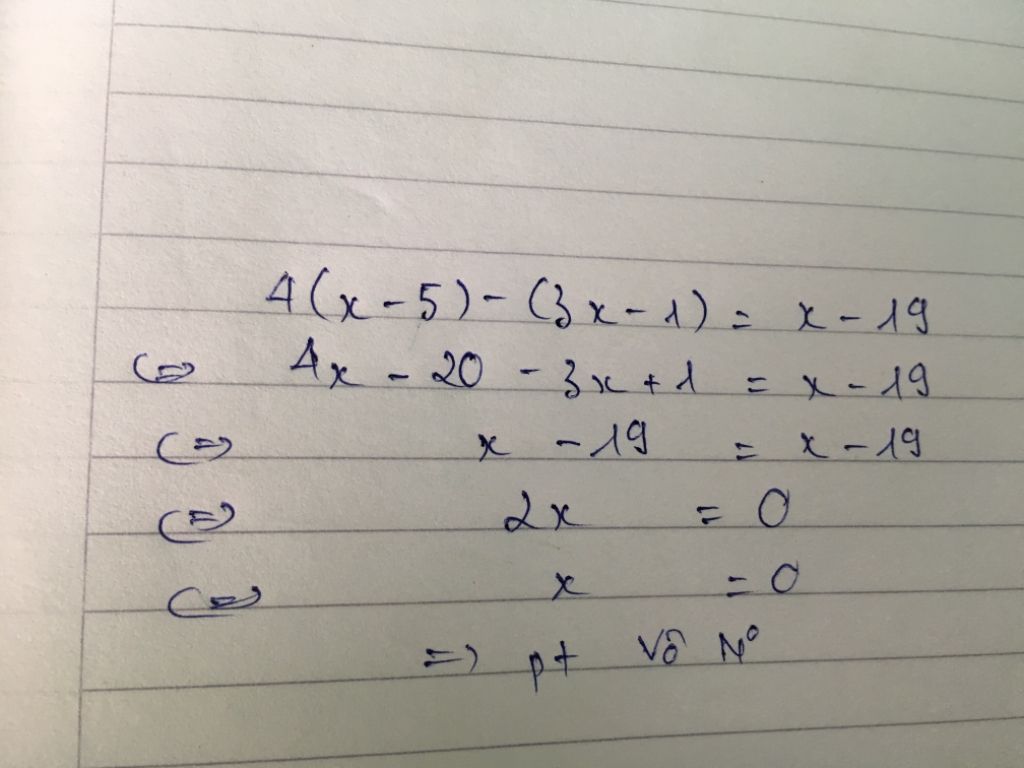 4(x - 5) - (3x - 1) = x - 19
<=> 4x - 20 - 3x + 1 = x - 19
<=> x - 19 = x - 19
<=> 2x = 0
<=> x = 0
=> pt Vô N°